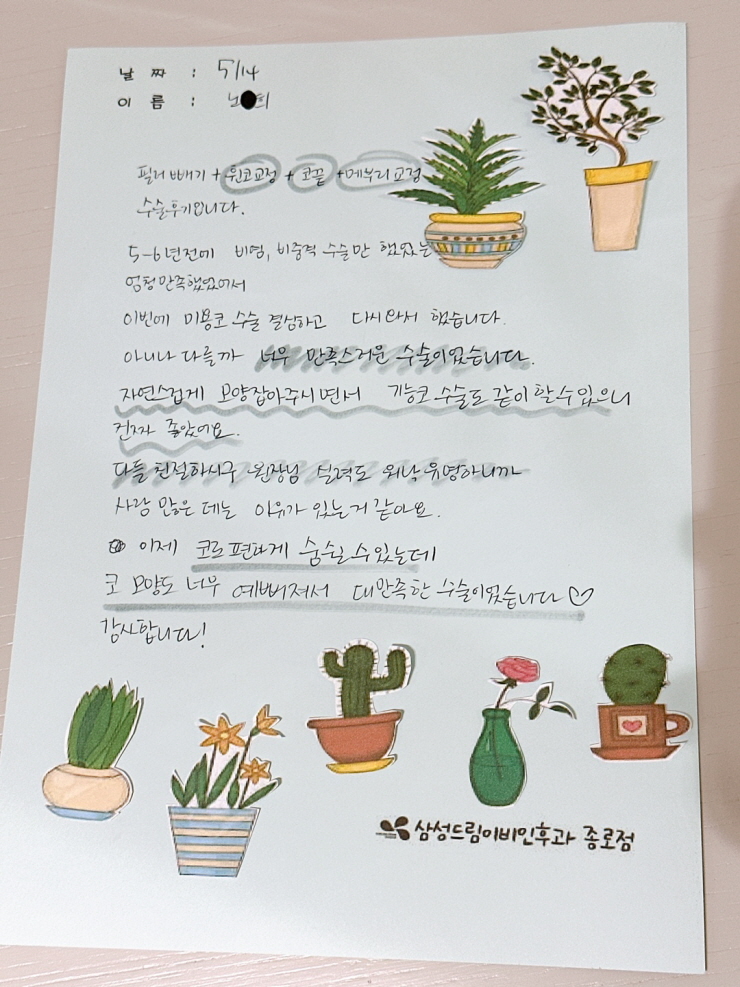 날 짜 : 5/14
이 름 : 노 희
필러 빼기 + 휜코교정 + 코끝 + 메부리교정
수술후기입니다.
5-6년전에 비염, 비중격 수술만 했었는
엄청만족했었어서
이번에 미용코 수술 결심하고 다시와서 했습니다.
아니나 다를까 너무 만족스러운 수술이었습니다.
자연스럽게 모양잡아주시면서 기능코 수술도 같이 할수 있으니
진짜 좋았어요.
다들 친절하시구 원장님 실력도 워낙 유명하니까
사람 많은 데는 이유가 있는거 같아요.
이제 코로 편하게 숨쉴 수 있는데
코 모양도 너무 예뻐져서 대만족한 수술이었습니다♡
감사합니다!
삼성드림이비인후과 종로점